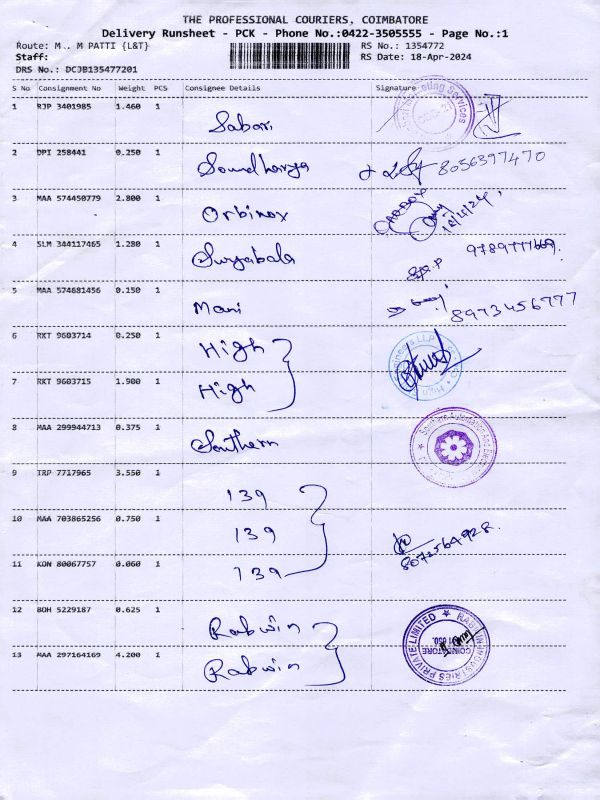 THE PROFESSIONAL COURIERS, COIMBATORE
Delivery Runsheet - PCK - Phone No.:0422-3505555 - Page No.:1
Route: M.. M PATTI {L&T} RS No.: 1354772
Staff: RS Date: 18-Apr-2024
DRS No.: DCJB135477201
S No Consignment No Weight PCS Consignee Details Signature
1 RJP 3401985 1.460 1 Sabari
2 DPI 258441 0.250 1 Soundharya 8056397470
3 MAA 574450779 2.800 1 Orbinox
4 SLM 344117465 1.280 1 Suryabala
5 MAA 574681456 0.150 1 Mani 8973456777
6 RKT 9603714 0.250 1 High
7 RKT 9603715 1.900 1 High
8 MAA 299944713 0.375 1 Southern
9 TRP 7717965 3.550 1 139
10 MAA 703865256 0.750 1 139
11 KON 80067757 0.060 1 139
8072564928
12 BOH 5229187 0.625 1 Rabwin
13 MAA 297164169 4.200 1 Rabwin
PRIVATE LIMITED
COIMBATORE